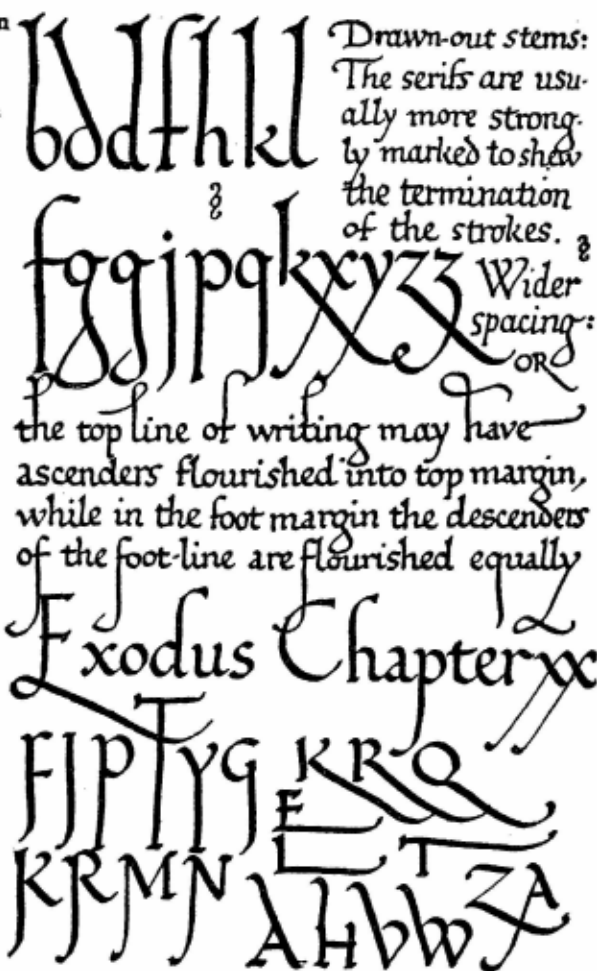 n
bddfhkl
Drawn-out stems:
The serifs are usu-
ally more strong-
ly marked to shew
the termination
of the strokes.
fggjpqkxyzz
Wider
spacing:
OR
the top line of writing may have
ascenders flourished into top margin,
while in the foot margin the descenders
of the foot-line are flourished equally
Exodus Chapter xx
FJPTYG
KRQ
E
L T
KRMN
AHVW
ZA